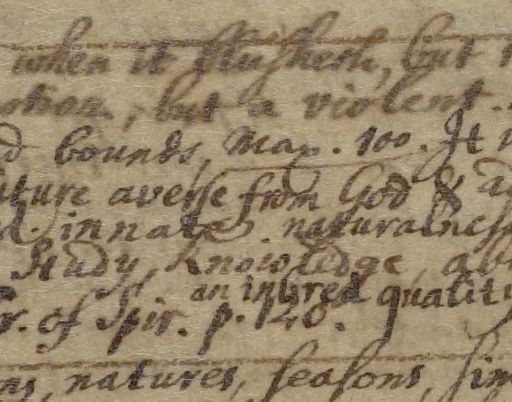 when it flusheth, but
otion, but a violent
d bounds, Max. 100. It
ture averse from God &
innate naturalness
study, knowledge,
an inbred quality
r. of Spir. p. 148.
natures, seasons,